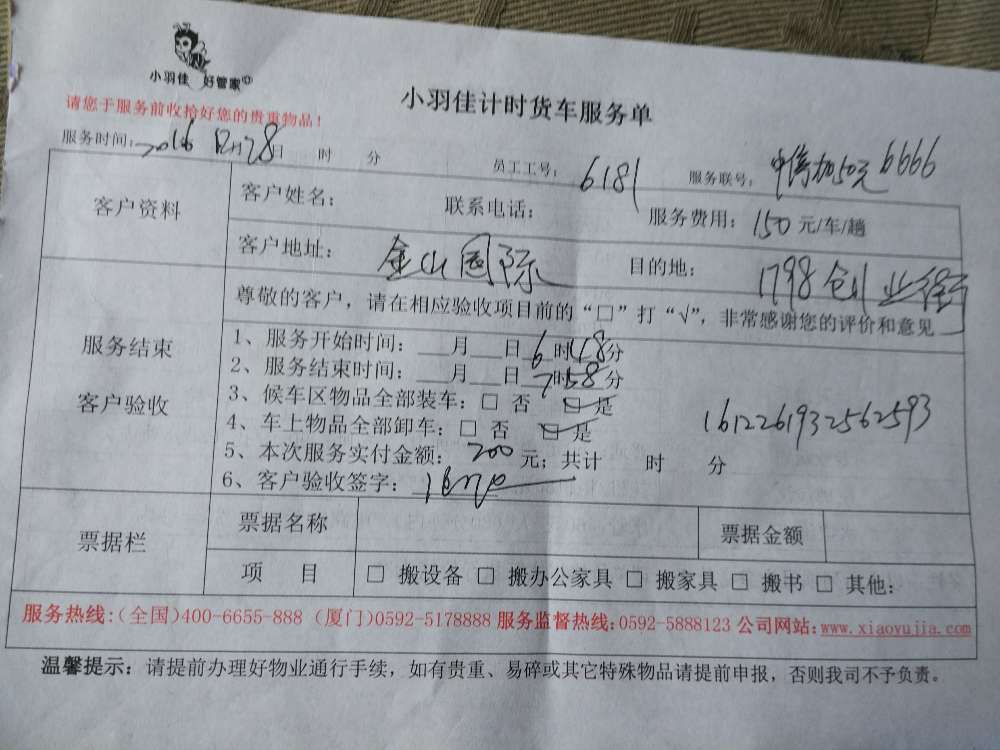 小羽佳 好管家
小羽佳计时货车服务单
请您于服务前收拾好您的贵重物品！
服务时间：2016 12月28日 时 分 员工工号：6181 服务联号：中停加50元 6666
客户资料 客户姓名： 联系电话： 服务费用：150元/车/趟
客户地址：金山国际 目的地：1798创业街
尊敬的客户，请在相应验收项目前的“□”打“√”，非常感谢您的评价和意见
服务结束
客户验收
1、服务开始时间：___月___日6时18分
2、服务结束时间：___月___日7时58分
3、候车区物品全部装车：□ 否 ☑ 是
4、车上物品全部卸车：□ 否 ☑ 是
1612261932562593
5、本次服务实付金额：200元；共计 时 分
6、客户验收签字：
票据栏 票据名称 票据金额
项 目 □ 搬设备 □ 搬办公家具 □ 搬家具 □ 搬书 □ 其他：
服务热线：（全国）400-6655-888（厦门）0592-5178888 服务监督热线：0592-5888123 公司网站：www.xiaoyujia.com
温馨提示：请提前办理好物业通行手续，如有贵重、易碎或其它特殊物品请提前申报，否则我司不予负责。